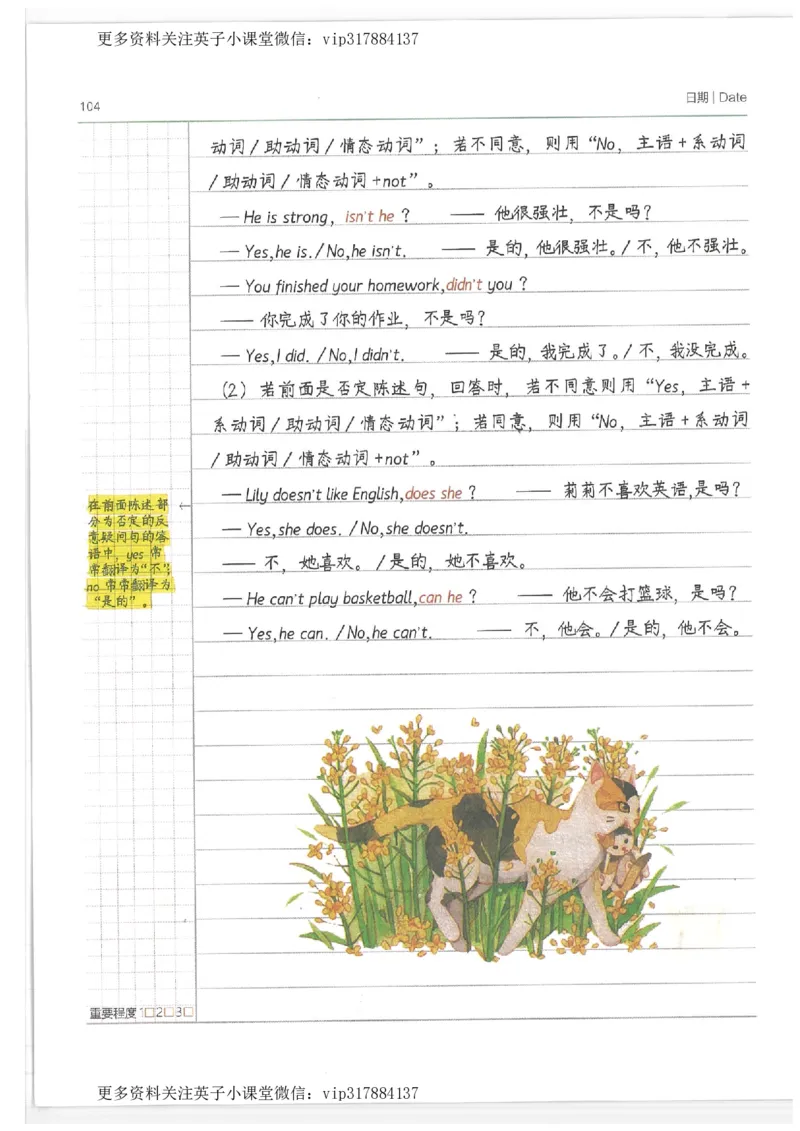 更多资料关注英子小课堂微信：vip317884137
104
日期 | Date
动词/助动词/情态动词”；若不同意，则用“No，主语+系动词
/助动词/情态动词+not”。
— He is strong, isn't he？ —— 他很强壮，不是吗？
— Yes,he is./No,he isn't. —— 是的,他很强壮。/不，他不强壮。
— You finished your homework,didn't you？
—— 你完成了你的作业，不是吗？
— Yes,I did. /No,I didn't. —— 是的,我完成了。/不，我没完成。
（2）若前面是否定陈述句，回答时，若不同意则用“Yes，主语+
系动词/助动词/情态动词”；若同意，则用“No，主语+系动词
/助动词/情态动词+not”。
— Lily doesn't like English,does she？ —— 莉莉不喜欢英语,是吗？
— Yes,she does. /No,she doesn't.
—— 不，她喜欢。/是的，她不喜欢。
— He can't play basketball,can he？ —— 他不会打篮球，是吗？
— Yes,he can. /No,he can't. —— 不，他会。/是的，他不会。
在前面陈述部
分为否定的反
意疑问句的答
语中，yes 常
常翻译为“不”；
no 常常翻译为
“是的”。
←
重要程度 1□2□3□
更多资料关注英子小课堂微信：vip317884137